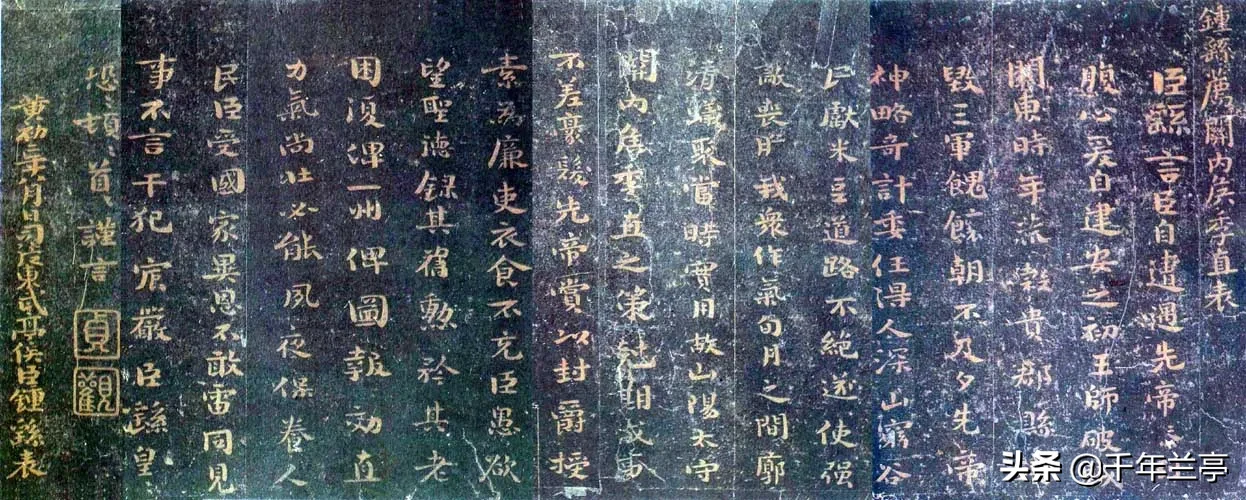 鍾繇薦關內侯季直表
臣繇言臣自遭遇先帝忝
腹心爰自建安之初王師破
關東時年荒穀貴郡縣
毀三軍餽饟朝不及夕先帝
神略奇計委任得人深山窮谷
民獻米豆道路不絕遂使强
敵喪膽我衆作氣旬月之間廓
清蟻聚當時實用故山陽太守
關內侯季直之策尅期成事
不差豪髮先帝賞以封爵授
素為廉吏衣食不充臣愚欲
望聖德錄其舊勳矜其老
困復俾一州俾圖報効直
力氣尚壯必能夙夜保養人
民臣受國家異恩不敢雷同見
事不言干犯宸嚴臣繇皇
恐〻頓〻首〻謹言
貞觀
黃初二年八月日司徒東武亭侯臣鍾繇表
头条 @千年兰亭